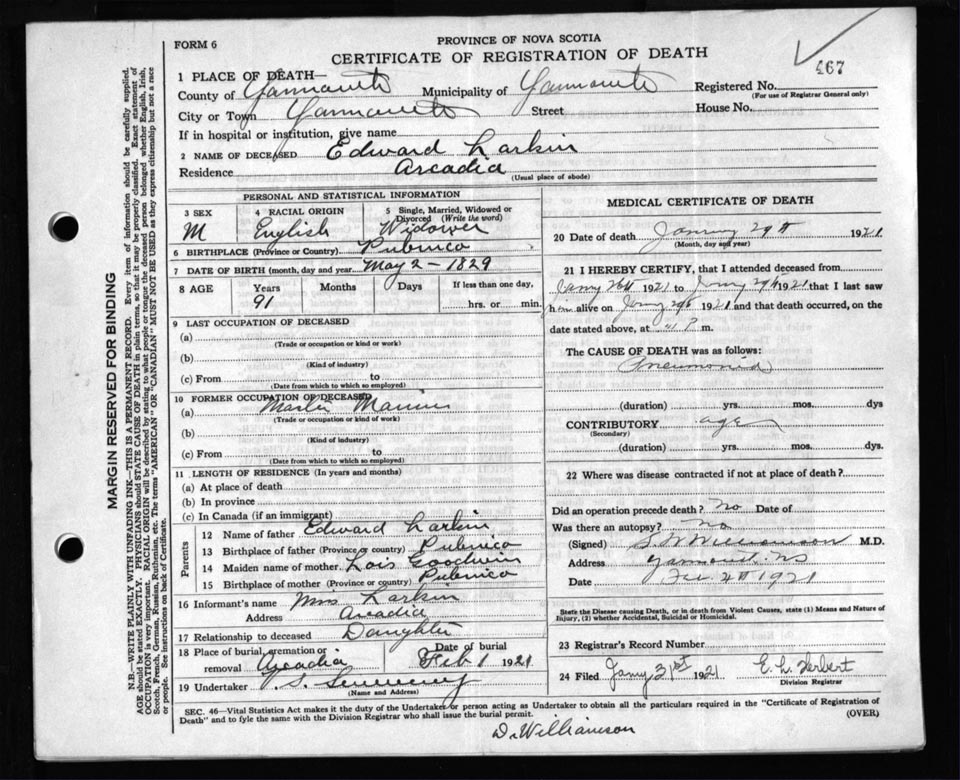 FORM 6
PROVINCE OF NOVA SCOTIA
CERTIFICATE OF REGISTRATION OF DEATH
467
1 PLACE OF DEATH—
County of Yarmouth Municipality of Yarmouth Registered No.
(For use of Registrar General only)
City or Town Yarmouth Street House No.
If in hospital or institution, give name
2 NAME OF DECEASED Edward Larkin
Residence Arcadia
(Usual place of abode)
PERSONAL AND STATISTICAL INFORMATION
3 SEX 4 RACIAL ORIGIN 5 Single, Married, Widowed or Divorced (Write the word)
M English Widower
6 BIRTHPLACE (Province or Country) Pubnico
7 DATE OF BIRTH (month, day and year) May 2 - 1829
8 AGE Years Months Days If less than one day,
91 hrs. or min.
9 LAST OCCUPATION OF DECEASED
(a)
(Trade or occupation or kind or work)
(b)
(Kind of industry)
(c) From to
(Date from which to which so employed)
10 FORMER OCCUPATION OF DECEASED
(a) Master Mariner
(Trade or occupation or kind of work)
(b)
(Kind of industry)
(c) From to
(Date from which to which so employed)
11 LENGTH OF RESIDENCE (In years and months)
(a) At place of death
(b) In province
(c) In Canada (if an immigrant)
Parents
12 Name of father Edward Larkin
13 Birthplace of father (Province or country) Pubnico
14 Maiden name of mother Lois Goodwin
15 Birthplace of mother (Province or country) Pubnico
16 Informant's name Miss Larkin
Address Arcadia
17 Relationship to deceased Daughter
18 Place of burial, cremation or removal Arcadia Date of burial Feb 1 1921
19 Undertaker V. S. Sweeney
(Name and Address)
MEDICAL CERTIFICATE OF DEATH
20 Date of death January 29th 1921
(Month, day and year)
21 I HEREBY CERTIFY, that I attended deceased from
Jany 26th 1921 to Jany 29th 1921 that I last saw
him alive on Jany 29th 1921 and that death occurred, on the
date stated above, at m.
The CAUSE OF DEATH was as follows:
Pneumonia
(duration) yrs. mos. dys
CONTRIBUTORY age
(Secondary)
(duration) yrs. mos. dys.
22 Where was disease contracted if not at place of death?
Did an operation precede death? no Date of
Was there an autopsy? no
(Signed) S. W. Williamson M.D.
Address Yarmouth NS
Date Feb. 2nd 1921
State the Disease causing Death, or in death from Violent Causes, state (1) Means and Nature of
Injury, (2) whether Accidental, Suicidal or Homicidal.
23 Registrar's Record Number
24 Filed Jany 31st 1921 E. L. Herbert
Division Registrar
SEC. 46—Vital Statistics Act makes it the duty of the Undertaker or person acting as Undertaker to obtain all the particulars required in the "Certificate of Registration of
Death" and to fyle the same with the Division Registrar who shall issue the burial permit. (OVER)
Dr Williamson
MARGIN RESERVED FOR BINDING
N.B.—WRITE PLAINLY WITH UNFADING INK—THIS IS A PERMANENT RECORD. Every item of information should be carefully supplied.
AGE should be stated EXACTLY. PHYSICIANS should STATE CAUSE OF DEATH in plain terms, so that it may be properly classified. Exact statement of
OCCUPATION is very important. RACIAL ORIGIN will be described by stating to what people or tongue the deceased person belonged whether English, Irish,
Scotch, French, German, Russian, Ruthenian, etc. The terms "AMERICAN" OR "CANADIAN" MUST NOT BE USED as they express citizenship but not a race
or people. See instructions on back of Certificate.